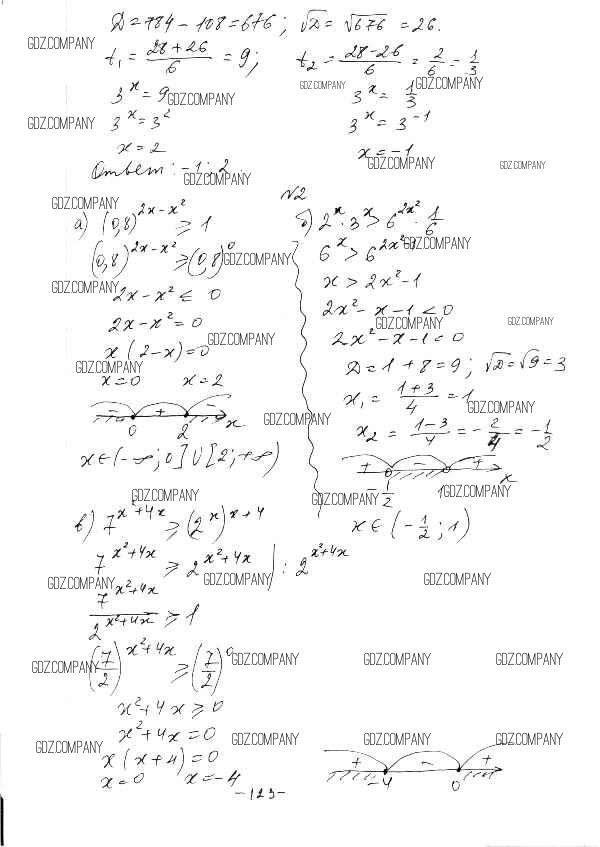 D = 784 - 108 = 676; √D = √676 = 26.
GDZ.COMPANY
t₁ = (28+26)/6 = 9; t₂ = (28-26)/6 = 2/6 = 1/3
3^x = 9 GDZ.COMPANY 3^x = 1/3 GDZ.COMPANY GDZ.COMPANY
GDZ.COMPANY 3^x = 3² 3^x = 3^-1
x = 2 x = -1
GDZ.COMPANY GDZ.COMPANY
Ответ: -1; 2.
GDZ.COMPANY
№2
GDZ.COMPANY
а) (0,8)^(2x-x²) ≥ 1
(0,8)^(2x-x²) ≥ (0,8)^0
GDZ.COMPANY
GDZ.COMPANY 2x - x² ≤ 0
2x - x² = 0
GDZ.COMPANY
x(2-x) = 0
GDZ.COMPANY
x = 0 x = 2
- + -
0 2 x
GDZ.COMPANY
x ∈ (-∞; 0] ∪ [2; +∞)
б) 2^x · 3^x > 6^(2x²) · 1/6
6^x > 6^(2x²-1)
GDZ.COMPANY
x > 2x² - 1
2x² - x - 1 < 0
GDZ.COMPANY GDZ.COMPANY
2x² - x - 1 = 0
D = 1 + 8 = 9; √D = √9 = 3
x₁ = (1+3)/4 = 1
GDZ.COMPANY
x₂ = (1-3)/4 = -2/4 = -1/2
+ - +
-1/2 1 x
GDZ.COMPANY GDZ.COMPANY
x ∈ (-1/2; 1)
GDZ.COMPANY
в) 7^(x²+4x) ≥ (2^x)^(x+4)
7^(x²+4x) ≥ 2^(x²+4x) | : 2^(x²+4x)
GDZ.COMPANY GDZ.COMPANY GDZ.COMPANY
7^(x²+4x)/2^(x²+4x) ≥ 1
(7/2)^(x²+4x) ≥ (7/2)^0
GDZ.COMPANY GDZ.COMPANY GDZ.COMPANY GDZ.COMPANY
x² + 4x ≥ 0
x² + 4x = 0
GDZ.COMPANY GDZ.COMPANY GDZ.COMPANY GDZ.COMPANY
x(x+4) = 0
x = 0 x = -4
+ - +
-4 0
-123-